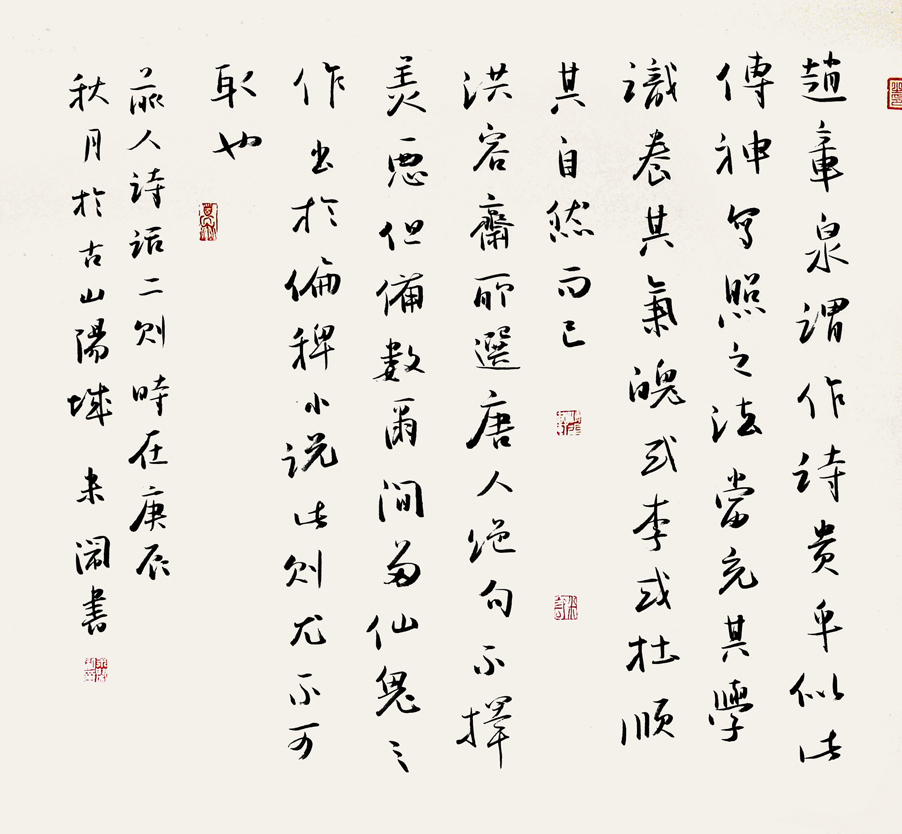 趙章泉謂作詩貴乎似此
傳神寫照之法當充其學
識養其氣魄或李或杜順
其自然而已
洪容齋所選唐人絕句不擇
美惡但備數爾間多仙鬼之
作出於偏稗小說此則尤不可
取也
前人詩話二則時在庚辰
秋月於古山陽城 書